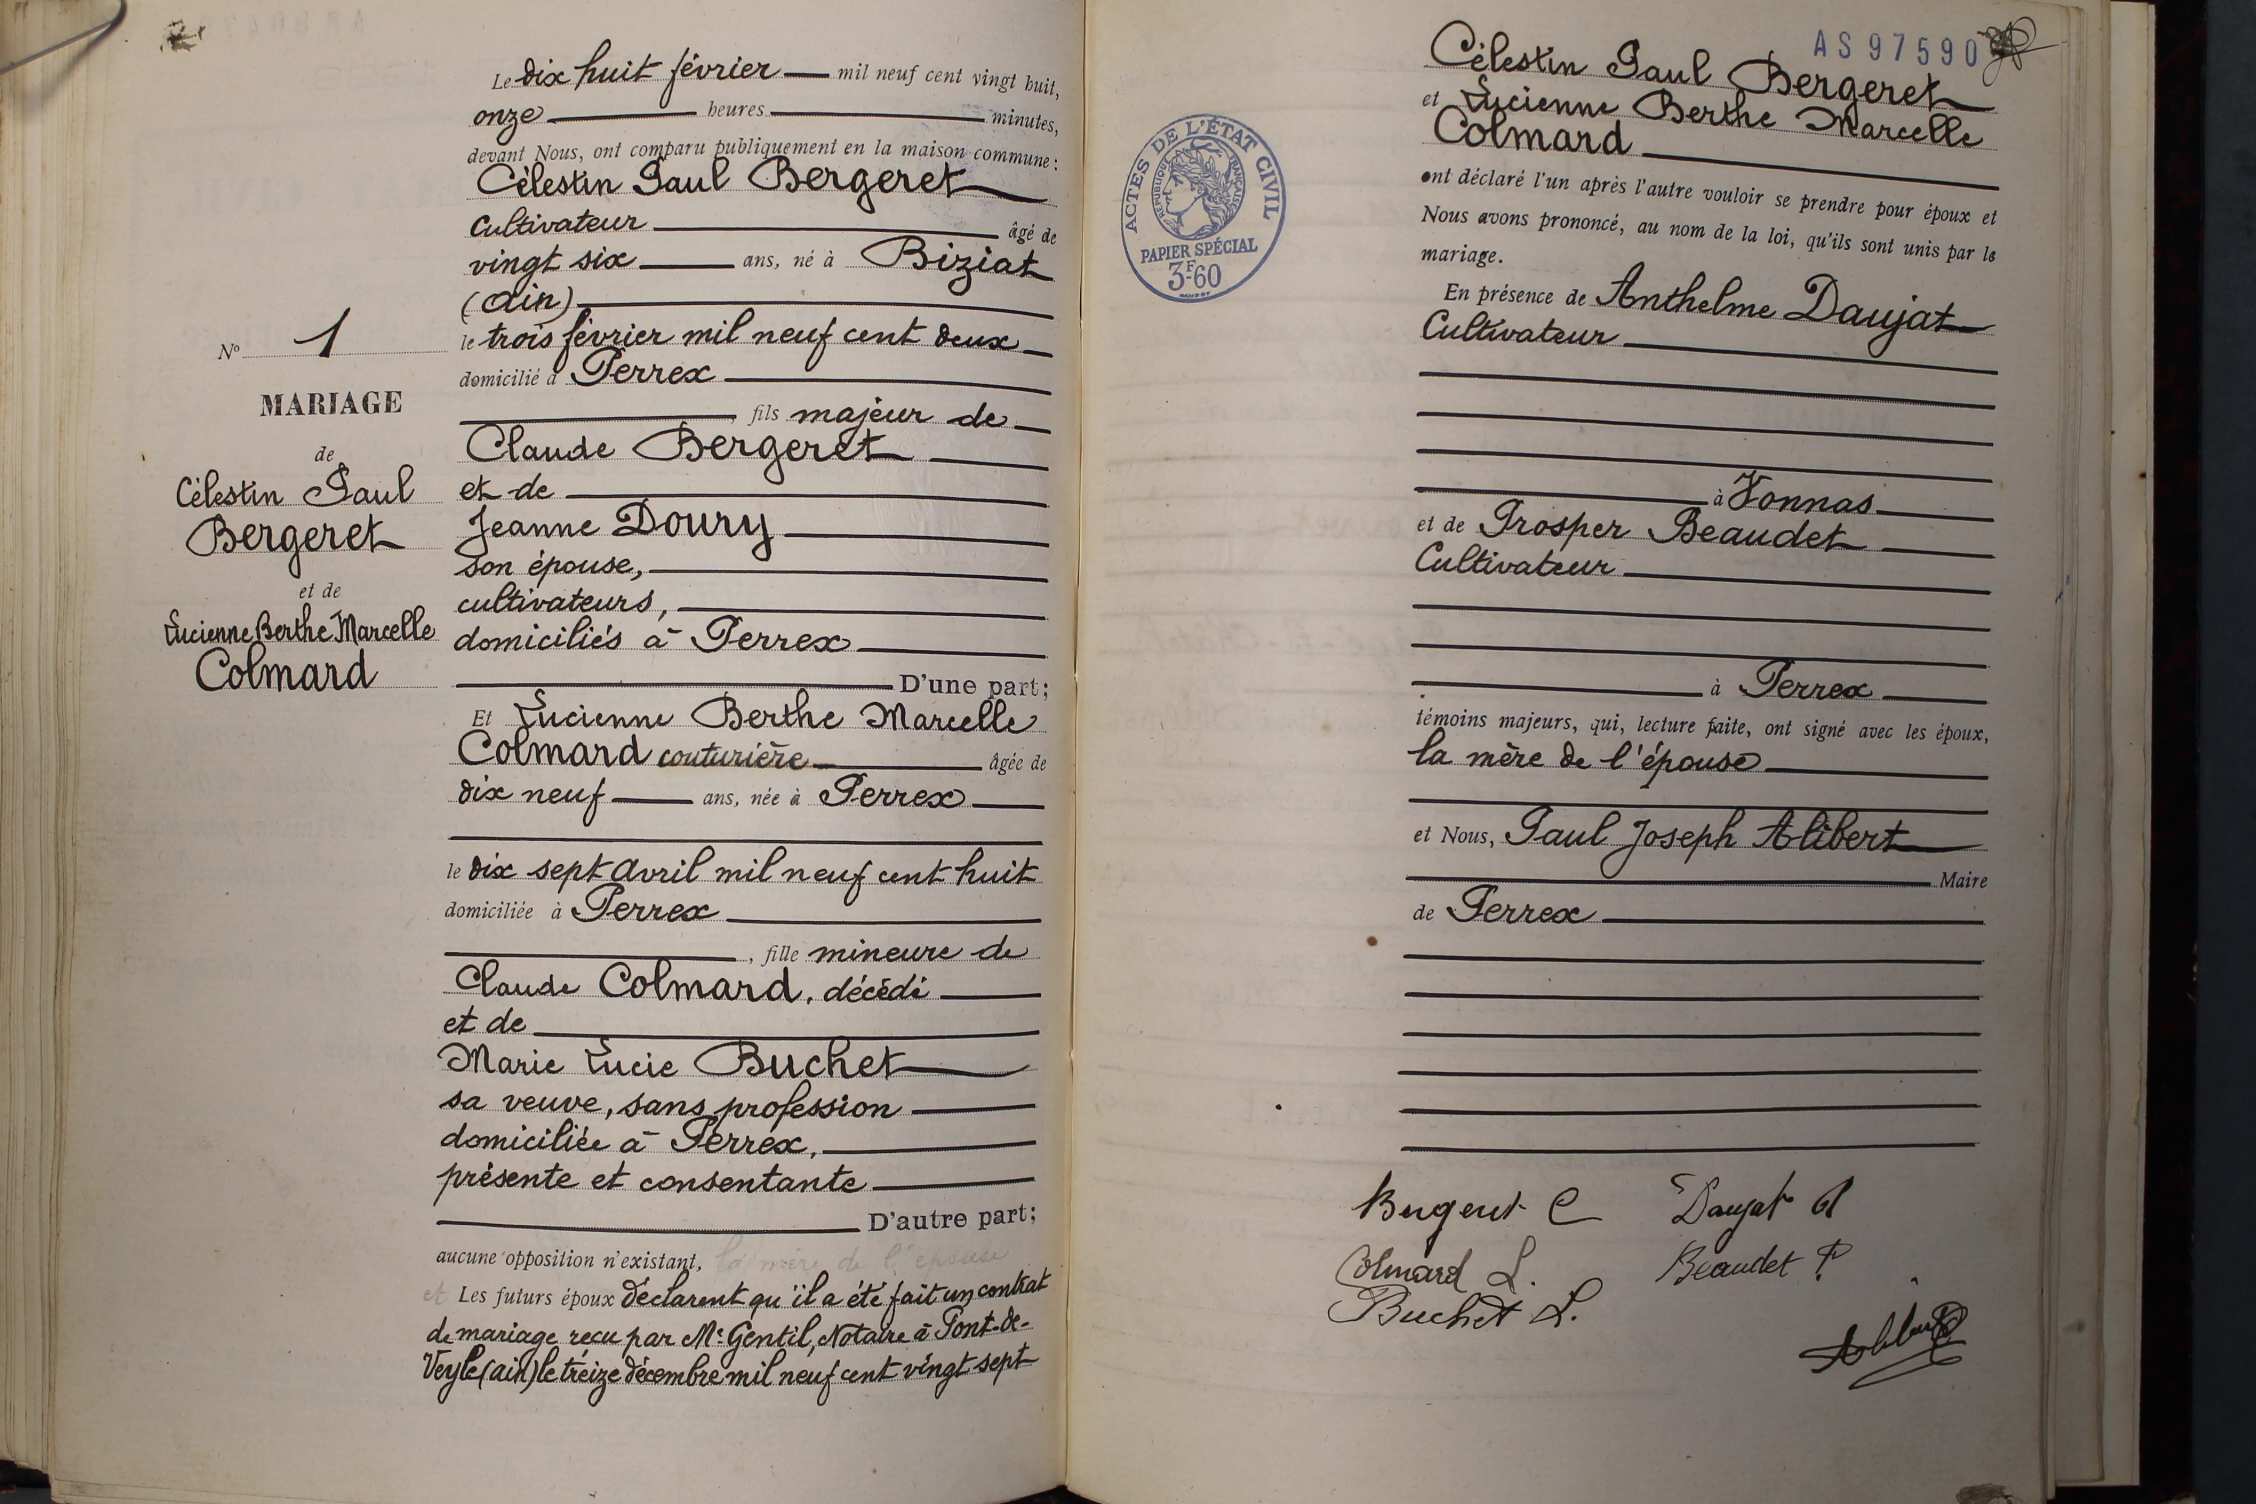 Le dix huit février mil neuf cent vingt huit,
onze heures minutes,
devant Nous, ont comparu publiquement en la maison commune :
Célestin Paul Bergeret
cultivateur âgé de
vingt six ans, né à Biziat
(ain)
le trois février mil neuf cent deux
domicilié à Perrex
, fils majeur de
Claude Bergeret
et de
Jeanne Doury
son épouse,
cultivateurs,
domiciliés à Perrex
D'une part;
Et Lucienne Berthe Marcelle
Colmard couturière âgée de
dix neuf ans, née à Perrex
le dix sept avril mil neuf cent huit
domiciliée à Perrex
, fille mineure de
Claude Colmard, décédé
et de
Marie Lucie Buchet
sa veuve, sans profession
domiciliée à Perrex,
présente et consentante
D'autre part;
aucune opposition n'existant, la mère de l'épouse
et Les futurs époux déclarent qu'il a été fait un contrat
de mariage reçu par Me Gentil, Notaire à Pont-de-
Veyle (ain) le treize décembre mil neuf cent vingt sept
No 1
MARIAGE
de
Célestin Paul
Bergeret
et de
Lucienne Berthe Marcelle
Colmard
AS97590
ACTES DE L'ÉTAT CIVIL
RÉPUBLIQUE FRANÇAISE
PAPIER SPÉCIAL
3F60
Célestin Paul Bergeret
et Lucienne Berthe Marcelle
Colmard
ont déclaré l'un après l'autre vouloir se prendre pour époux et
Nous avons prononcé, au nom de la loi, qu'ils sont unis par le
mariage.
En présence de Anthelme Daujat
Cultivateur
à Vonnas
et de Prosper Beaudet
Cultivateur
à Perrex
témoins majeurs, qui, lecture faite, ont signé avec les époux,
la mère de l'épouse
et Nous, Paul Joseph Alibert
Maire
de Perrex
Bergeret C Daujat A
Colmard L. Beaudet P
Buchet L.
Alibert